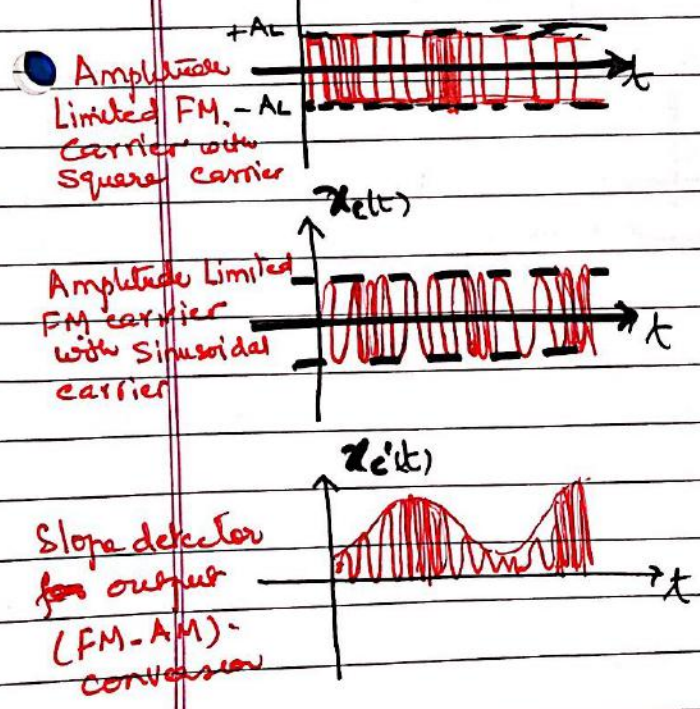 +AL
Amplitude
t
Limited FM. -AL
carrier with
square carrier
xc(t)
Amplitude Limited
FM carrier
t
with Sinusoidal
carrier
xc'(t)
Slope detector
output
t
(FM-AM)-
conversion